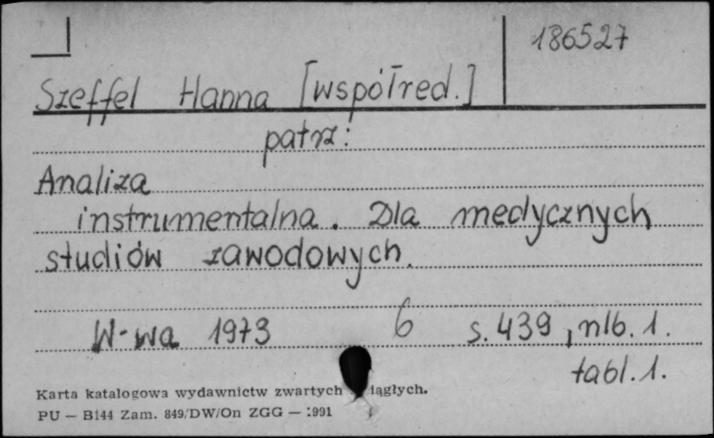 186527
Szeffel Hanna [współred.]
patrz:
Analiza
instrumentalna. Dla medycznych
studiów zawodowych.
W-wa 1973 6 s. 439, nlb. 1.
tabl. 1.
Karta katalogowa wydawnictw zwartych iągłych.
PU — B144 Zam. 849/DW/On ZGG — 1991